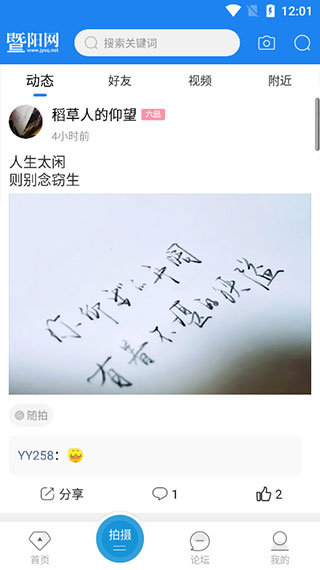 12:01
暨阳网
www.jysq.net
搜索关键词
动态
好友
视频
附近
稻草人的仰望
六品
4小时前
人生太闲
则别念窃生
你仰望的月圆
有着不堪的缺盗
@ 随拍
YY258：
分享
1
2
首页
拍摄
论坛
我的